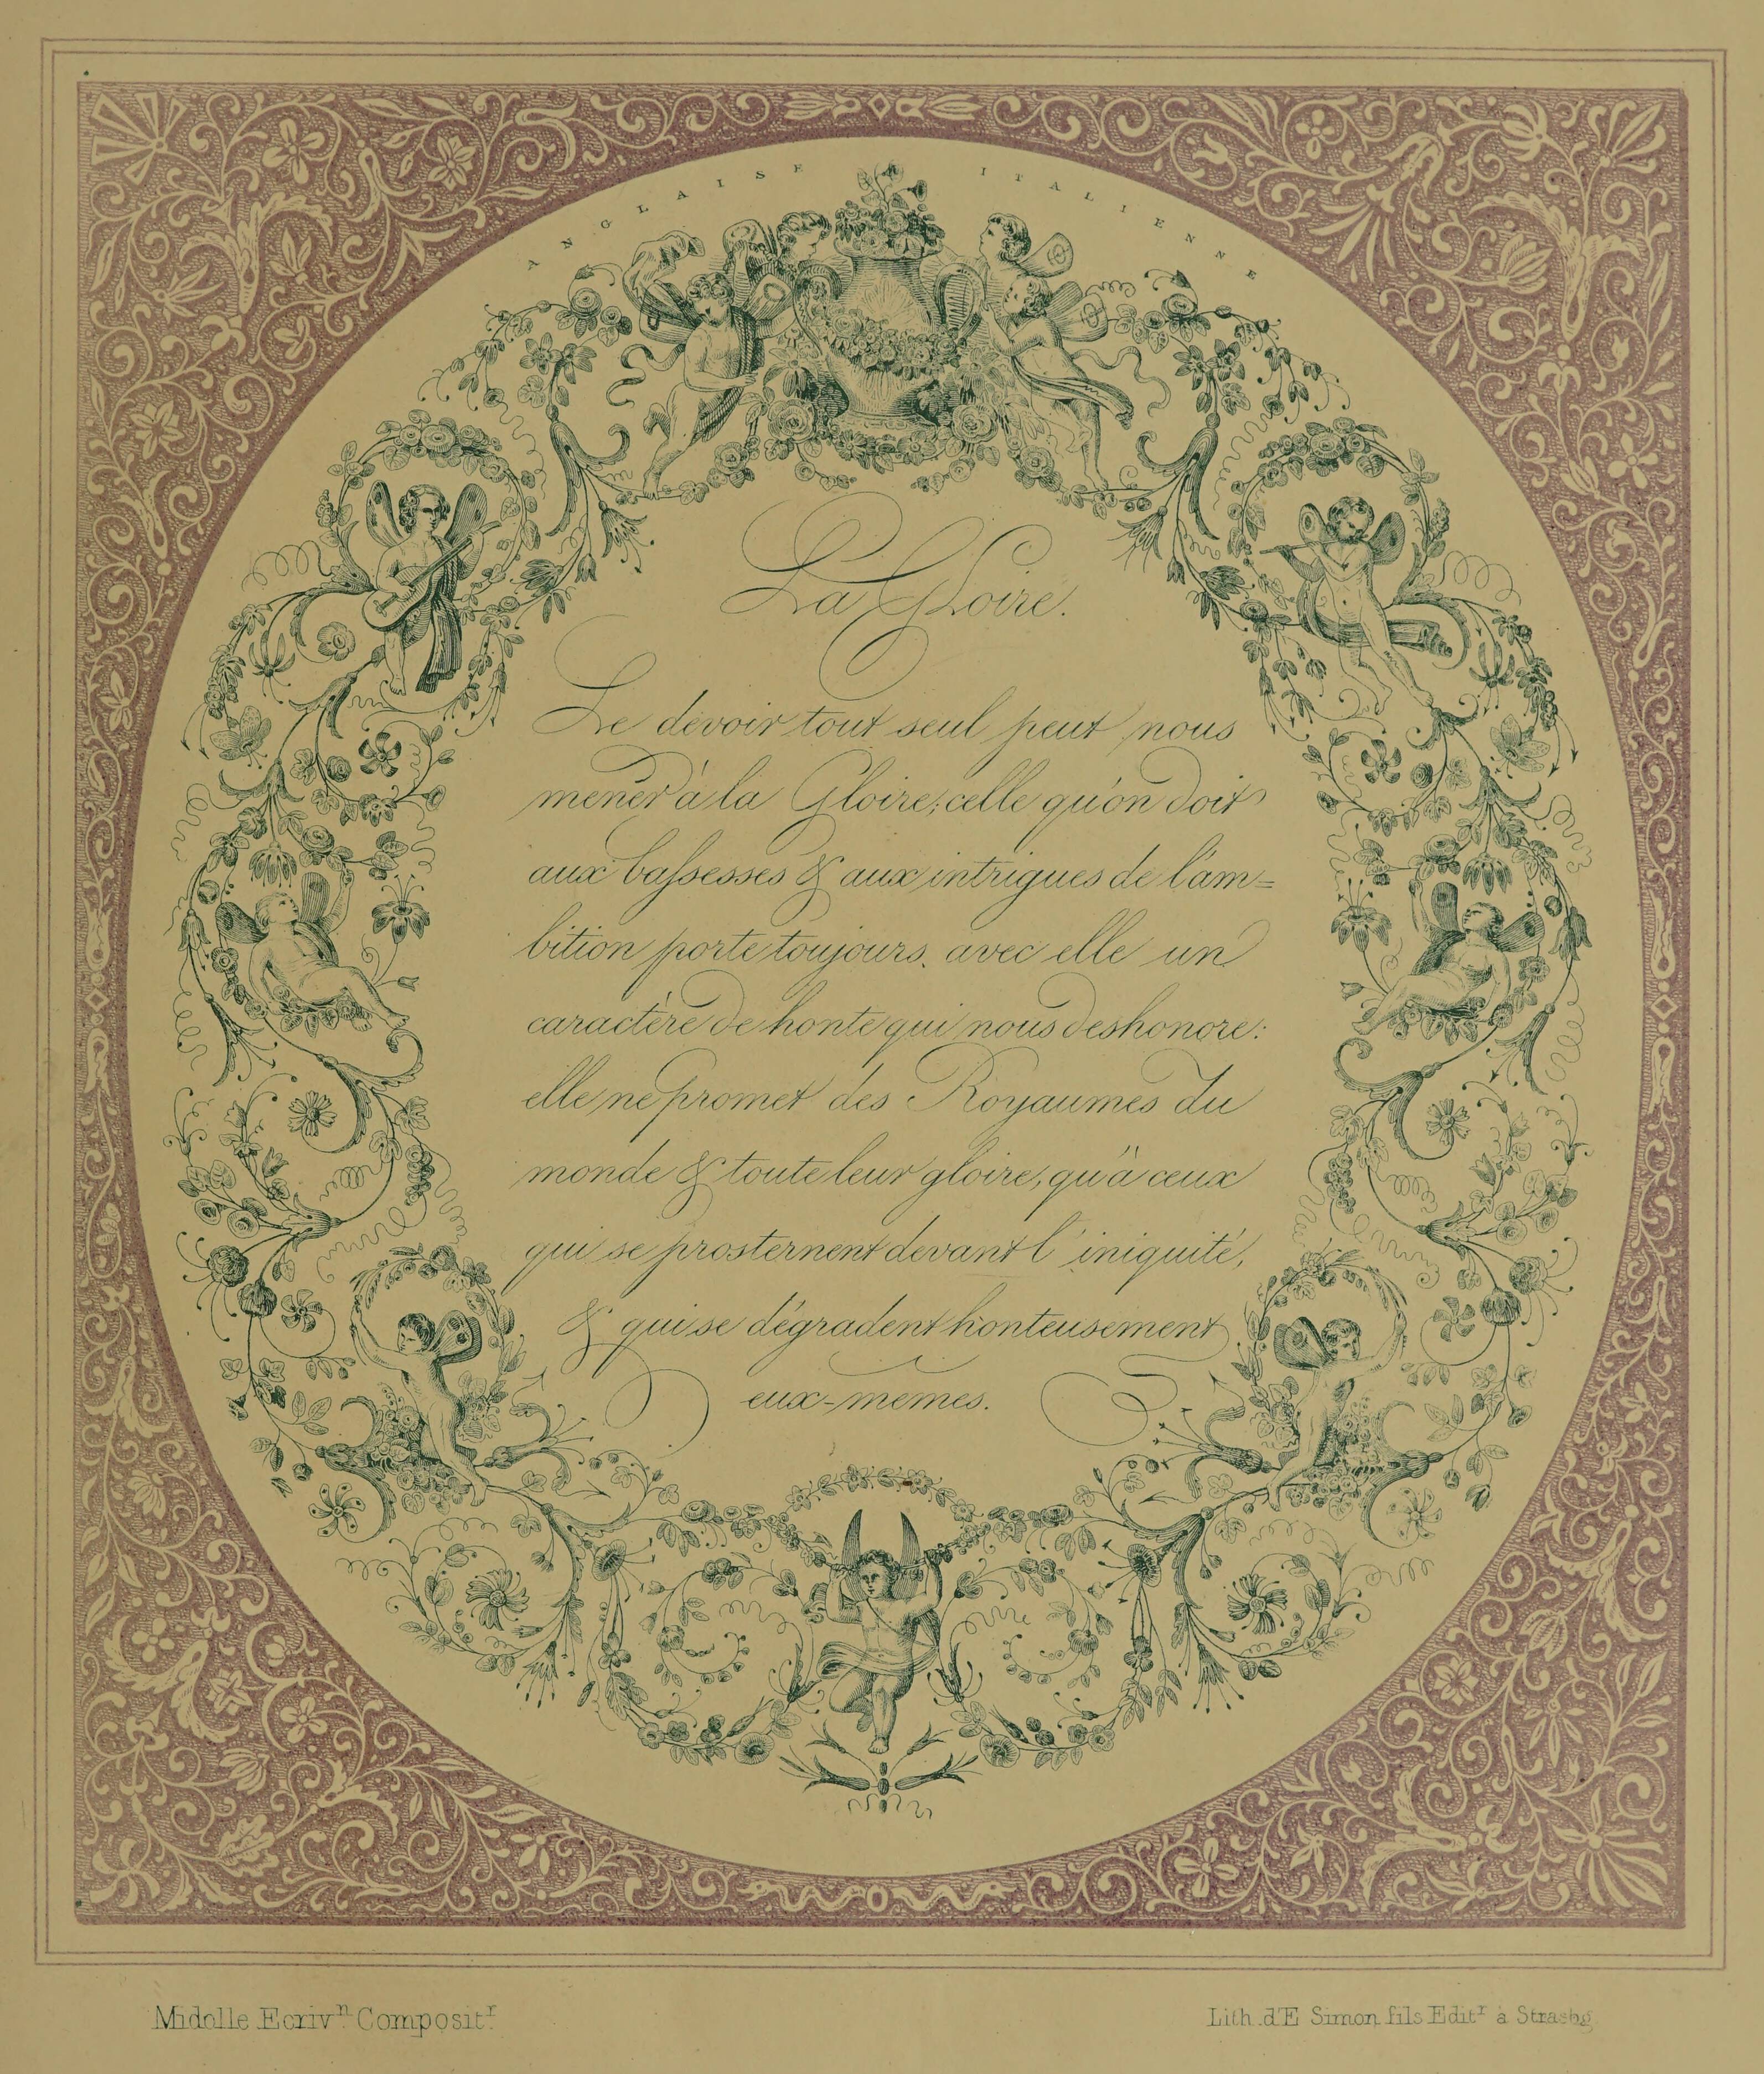 ANGLAISE ITALIENNE
La Gloire.
Le devoir tout seul peut nous
mener à la Gloire; celle qu'on doit
aux baſsesses & aux intrigues de l'am=
bition porte toujours avec elle un
caractère de honte qui nous deshonore:
elle ne promet des Royaumes du
monde & toute leur gloire, qu'à ceux
qui se prosternent devant l'iniquité,
& qui se dégradent honteusement
eux-mêmes.
Midolle Ecrivⁿ Compositʳ
Lith. d'E Simon fils Editʳ à Strasbg